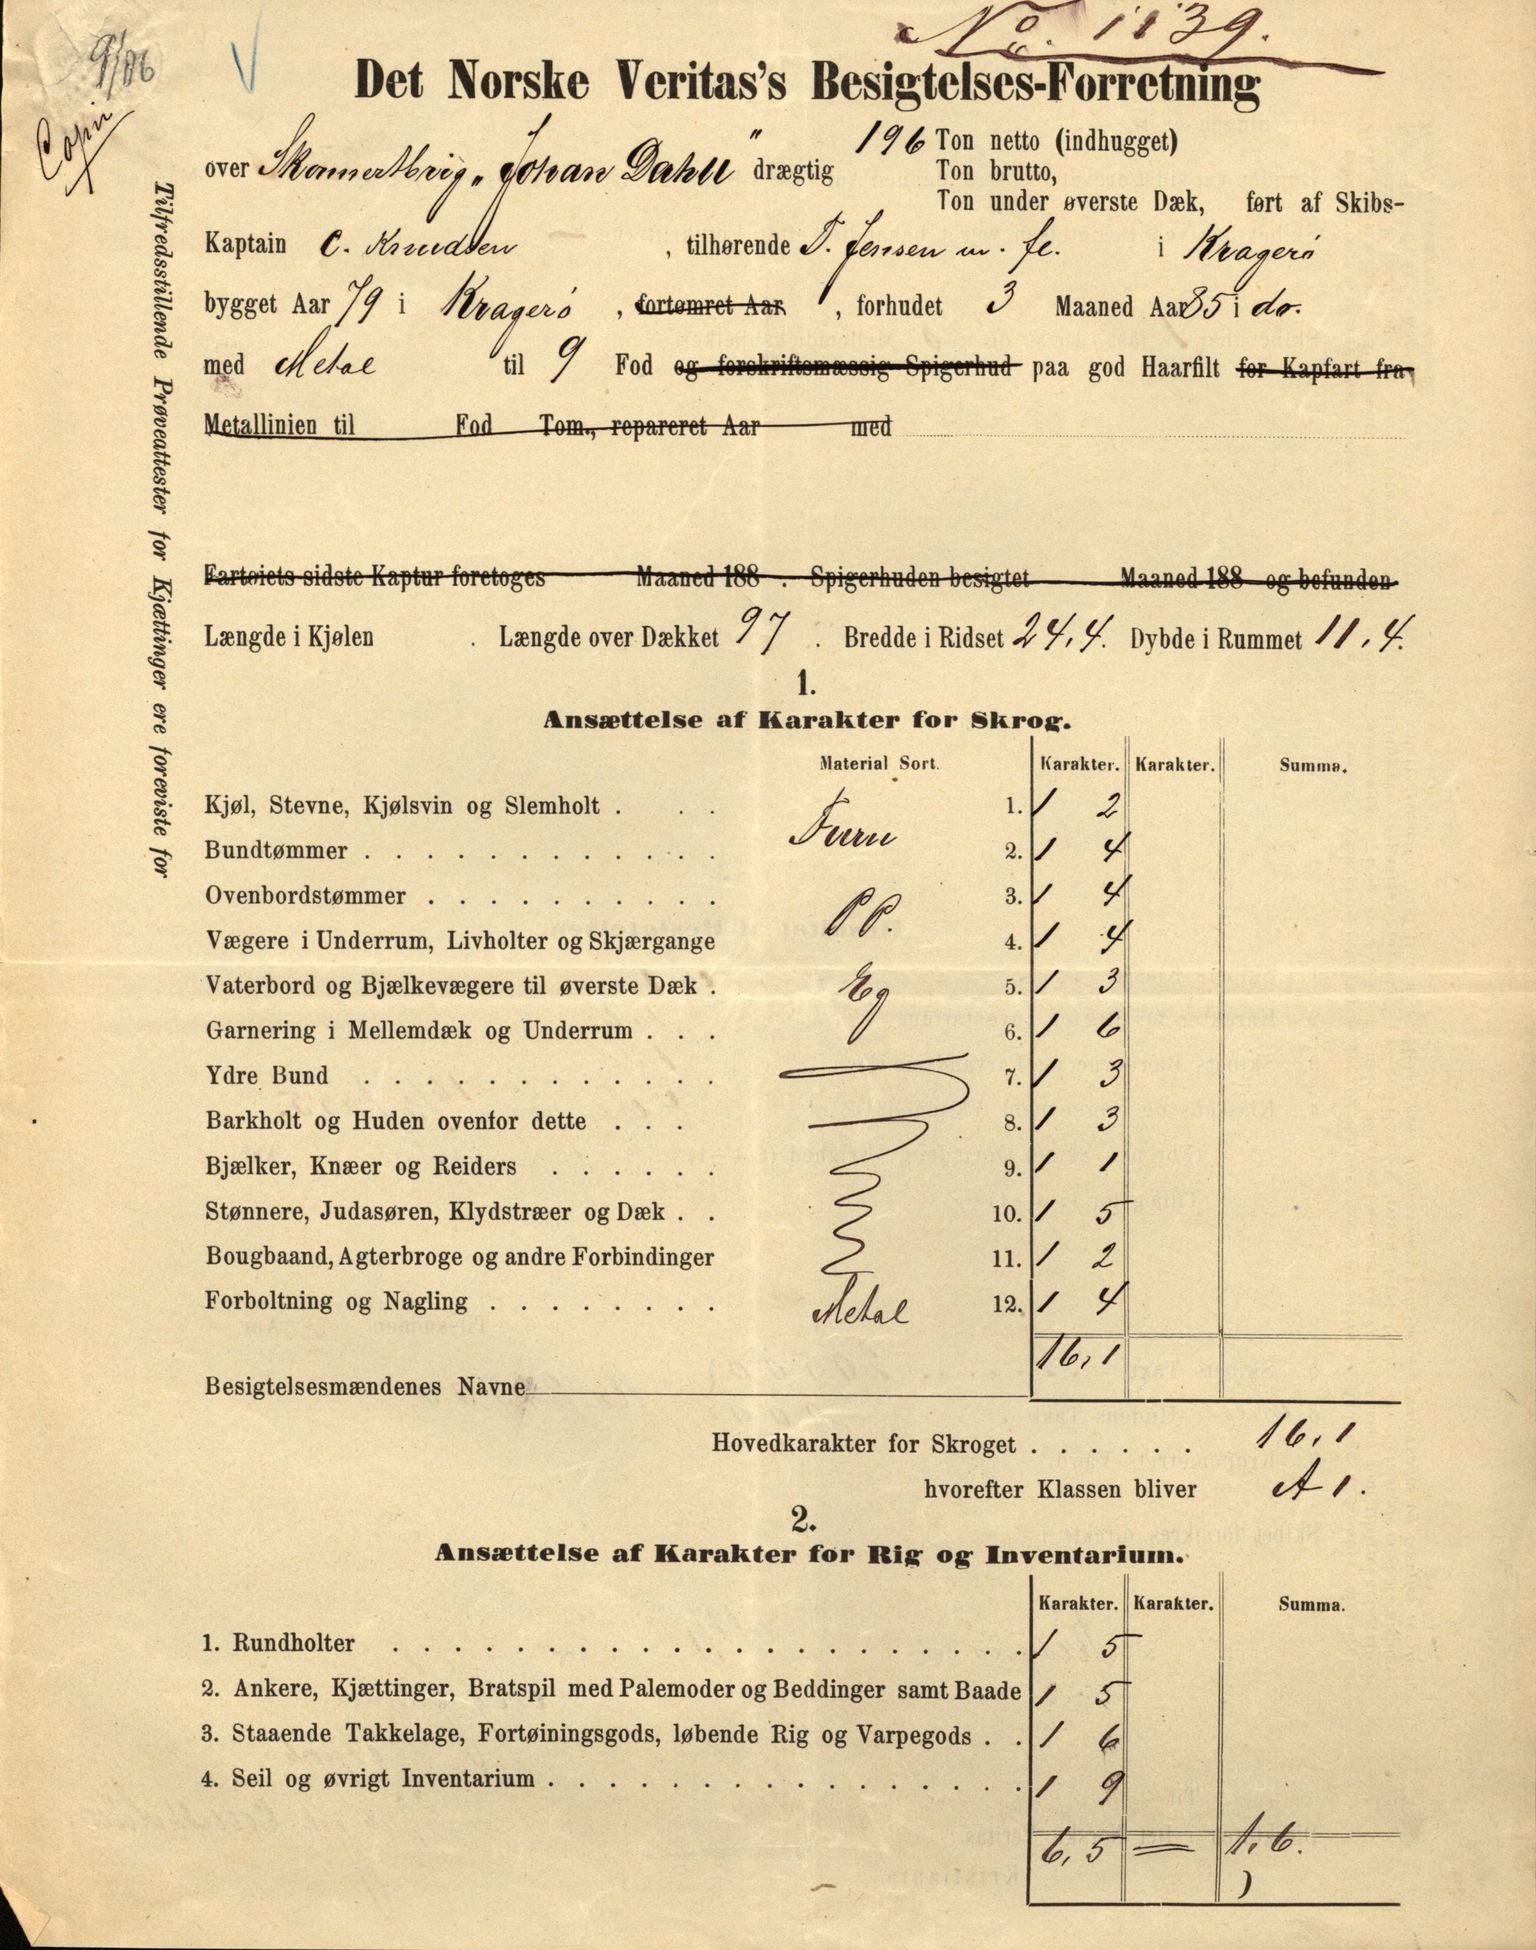 No. 1139.
9/86
Copi
Det Norske Veritas's Besigtelses-Forretning
over Skonnertbrig „Johan Dahll" drægtig 196 Ton netto (indhugget)
Ton brutto,
Ton under øverste Dæk, ført af Skibs-
Kaptain C. Knudsen, tilhørende T. Jensen m. fl. i Kragerø
bygget Aar 79 i Kragerø, fortømret Aar , forhudet 3 Maaned Aar 85 i do.
med Metal til 9 Fod og forskriftsmæssig Spigerhud paa god Haarfilt for Kapfart fra
Metallinien til Fod Tom., repareret Aar med
Fartøiets sidste Kaptur foretoges Maaned 188 . Spigerhuden besigtet Maaned 188 og befunden
Længde i Kjølen . Længde over Dækket 97 . Bredde i Ridset 24,4. Dybde i Rummet 11,4.
1.
Ansættelse af Karakter for Skrog.
Material Sort. Karakter. Karakter. Summa.
Kjøl, Stevne, Kjølsvin og Slemholt . . . 1. 1 2
Furu
Bundtømmer . . . . . . . . . . . . 2. 1 4
Ovenbordstømmer . . . . . . . . . . 3. 1 4
P P.
Vægere i Underrum, Livholter og Skjærgange 4. 1 4
Vaterbord og Bjælkevægere til øverste Dæk . Eg 5. 1 3
Garnering i Mellemdæk og Underrum . . . 6. 1 6
Ydre Bund . . . . . . . . . . . . 7. 1 3
Barkholt og Huden ovenfor dette . . . 8. 1 3
Bjælker, Knæer og Reiders . . . . . . 9. 1 1
Stønnere, Judasøren, Klydstræer og Dæk . . 10. 1 5
Bougbaand, Agterbroge og andre Forbindinger 11. 1 2
Forboltning og Nagling . . . . . . . . Metal 12. 1 4
16,1
Besigtelsesmændenes Navne
Hovedkarakter for Skroget . . . . . . 16,1
hvorefter Klassen bliver A 1.
2.
Ansættelse af Karakter for Rig og Inventarium.
Karakter. Karakter. Summa.
1. Rundholter . . . . . . . . . . . . . . . . . . . . 1 5
2. Ankere, Kjættinger, Bratspil med Palemoder og Beddinger samt Baade 1 5
3. Staaende Takkelage, Fortøiningsgods, løbende Rig og Varpegods . . 1 6
4. Seil og øvrigt Inventarium . . . . . . . . . . . . . . . . 1 9
6,5 = 1.6.
Tilfredsstillende Prøveattester for Kjættinger ere foreviste for